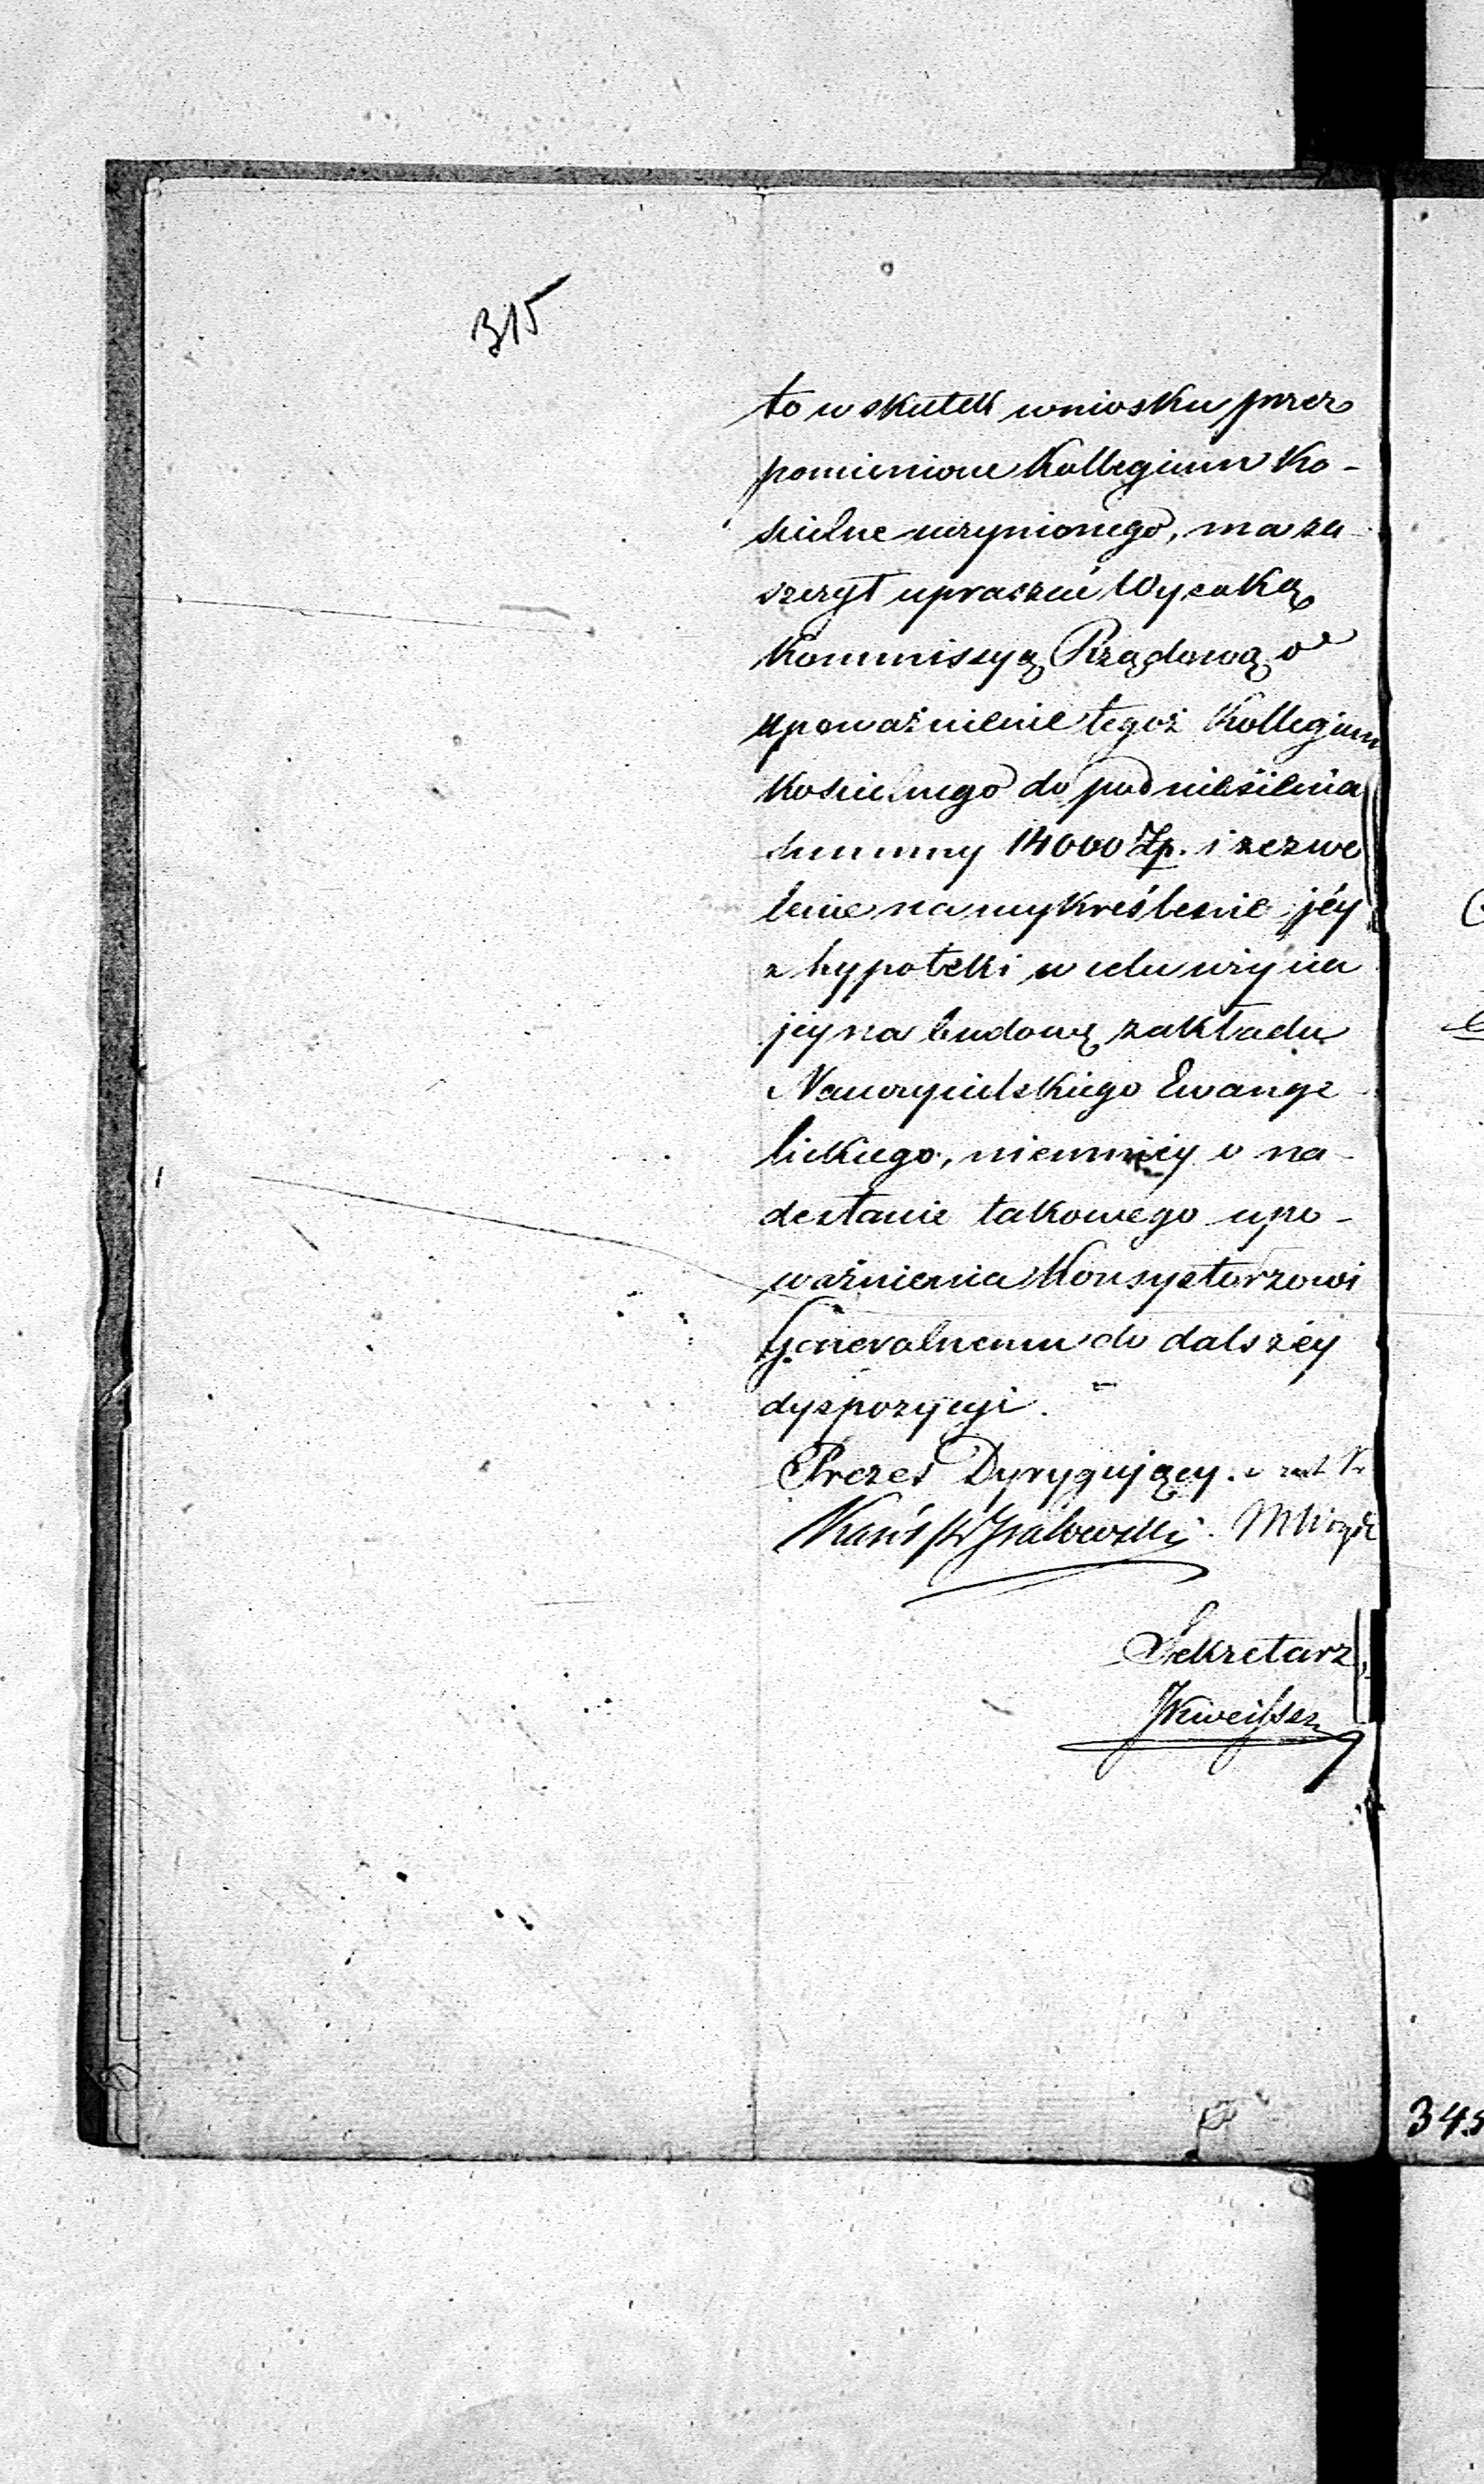 315
to w skutek wniosku przez
pomienione Kollegium Ko-
ścielne uczynionego, ma za-
szczyt upraszać Wysoką
Kommissyą Rządową o
upoważnienie tegoż Kollegium
Kościelnego do podniesienia
summy 14000 Zp. i zezwo
lenie na wykreślenie jéy
z hypoteki w celu użycia
jey na budowę zakładu
Nauczycielskiego Ewange-
lickiego, niemniéy o na-
desłanie takowego upo-
ważnienia Konsystorzowi
Generalnemu do dalszéy
dyspozycyi.
Prezes Dyrygujący.
Sekretarz,
345